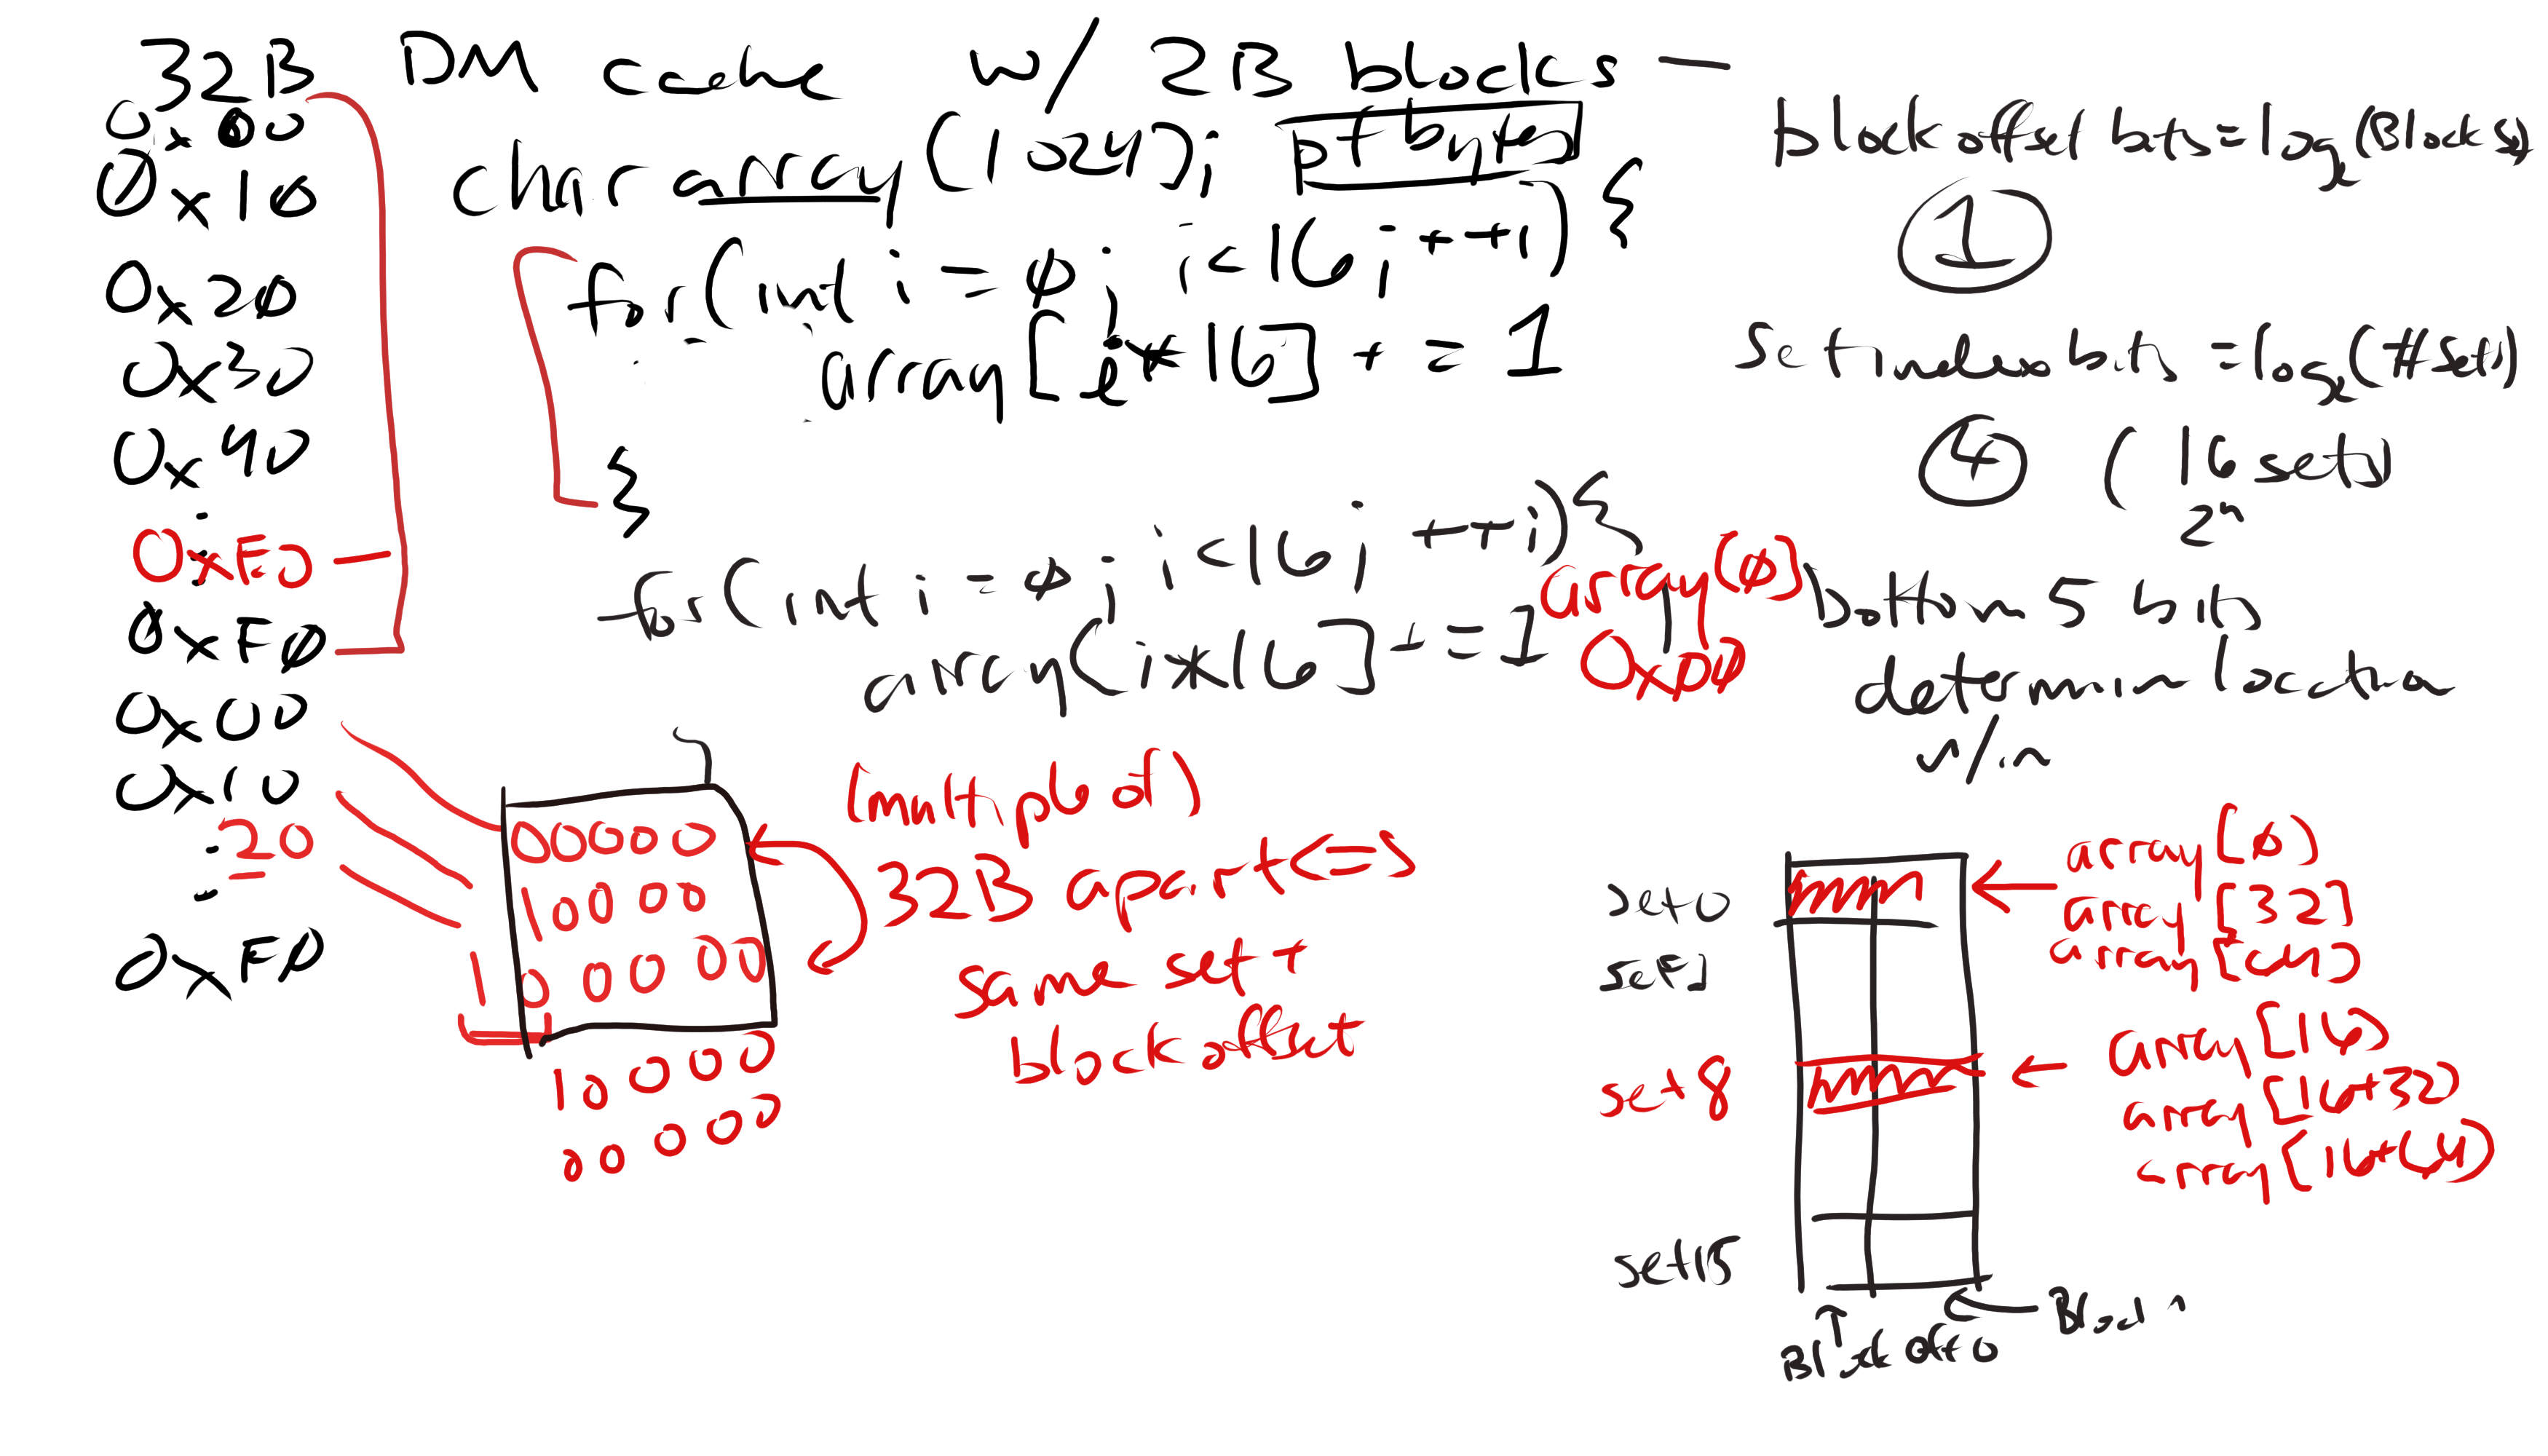 32B DM cache w/ 2B blocks —
char array[1024];
for(int i = 0; i<16; ++i) {
array[i*16] += 1
}
for(int i = 0; i<16; ++i){
array[i*16] += 1
array[0]
0x00
0x00
0x10
0x20
0x30
0x40
0xE0
0xF0
0x00
0x10
20
0xF0
block offset bits=log2(Block Sz)
1
set index bits = log2(#sets)
4 (16 sets)
bottom 5 bits
determin location
w/in
00000
10000
1 0 00 00
10000
00000
(multiple of)
32B apart <=>
same set +
block offset
set 0
set 1
set 8
set 15
array[0]
array[32]
array[64]
array[16]
array[16+32]
array[16+64]
Block off 0